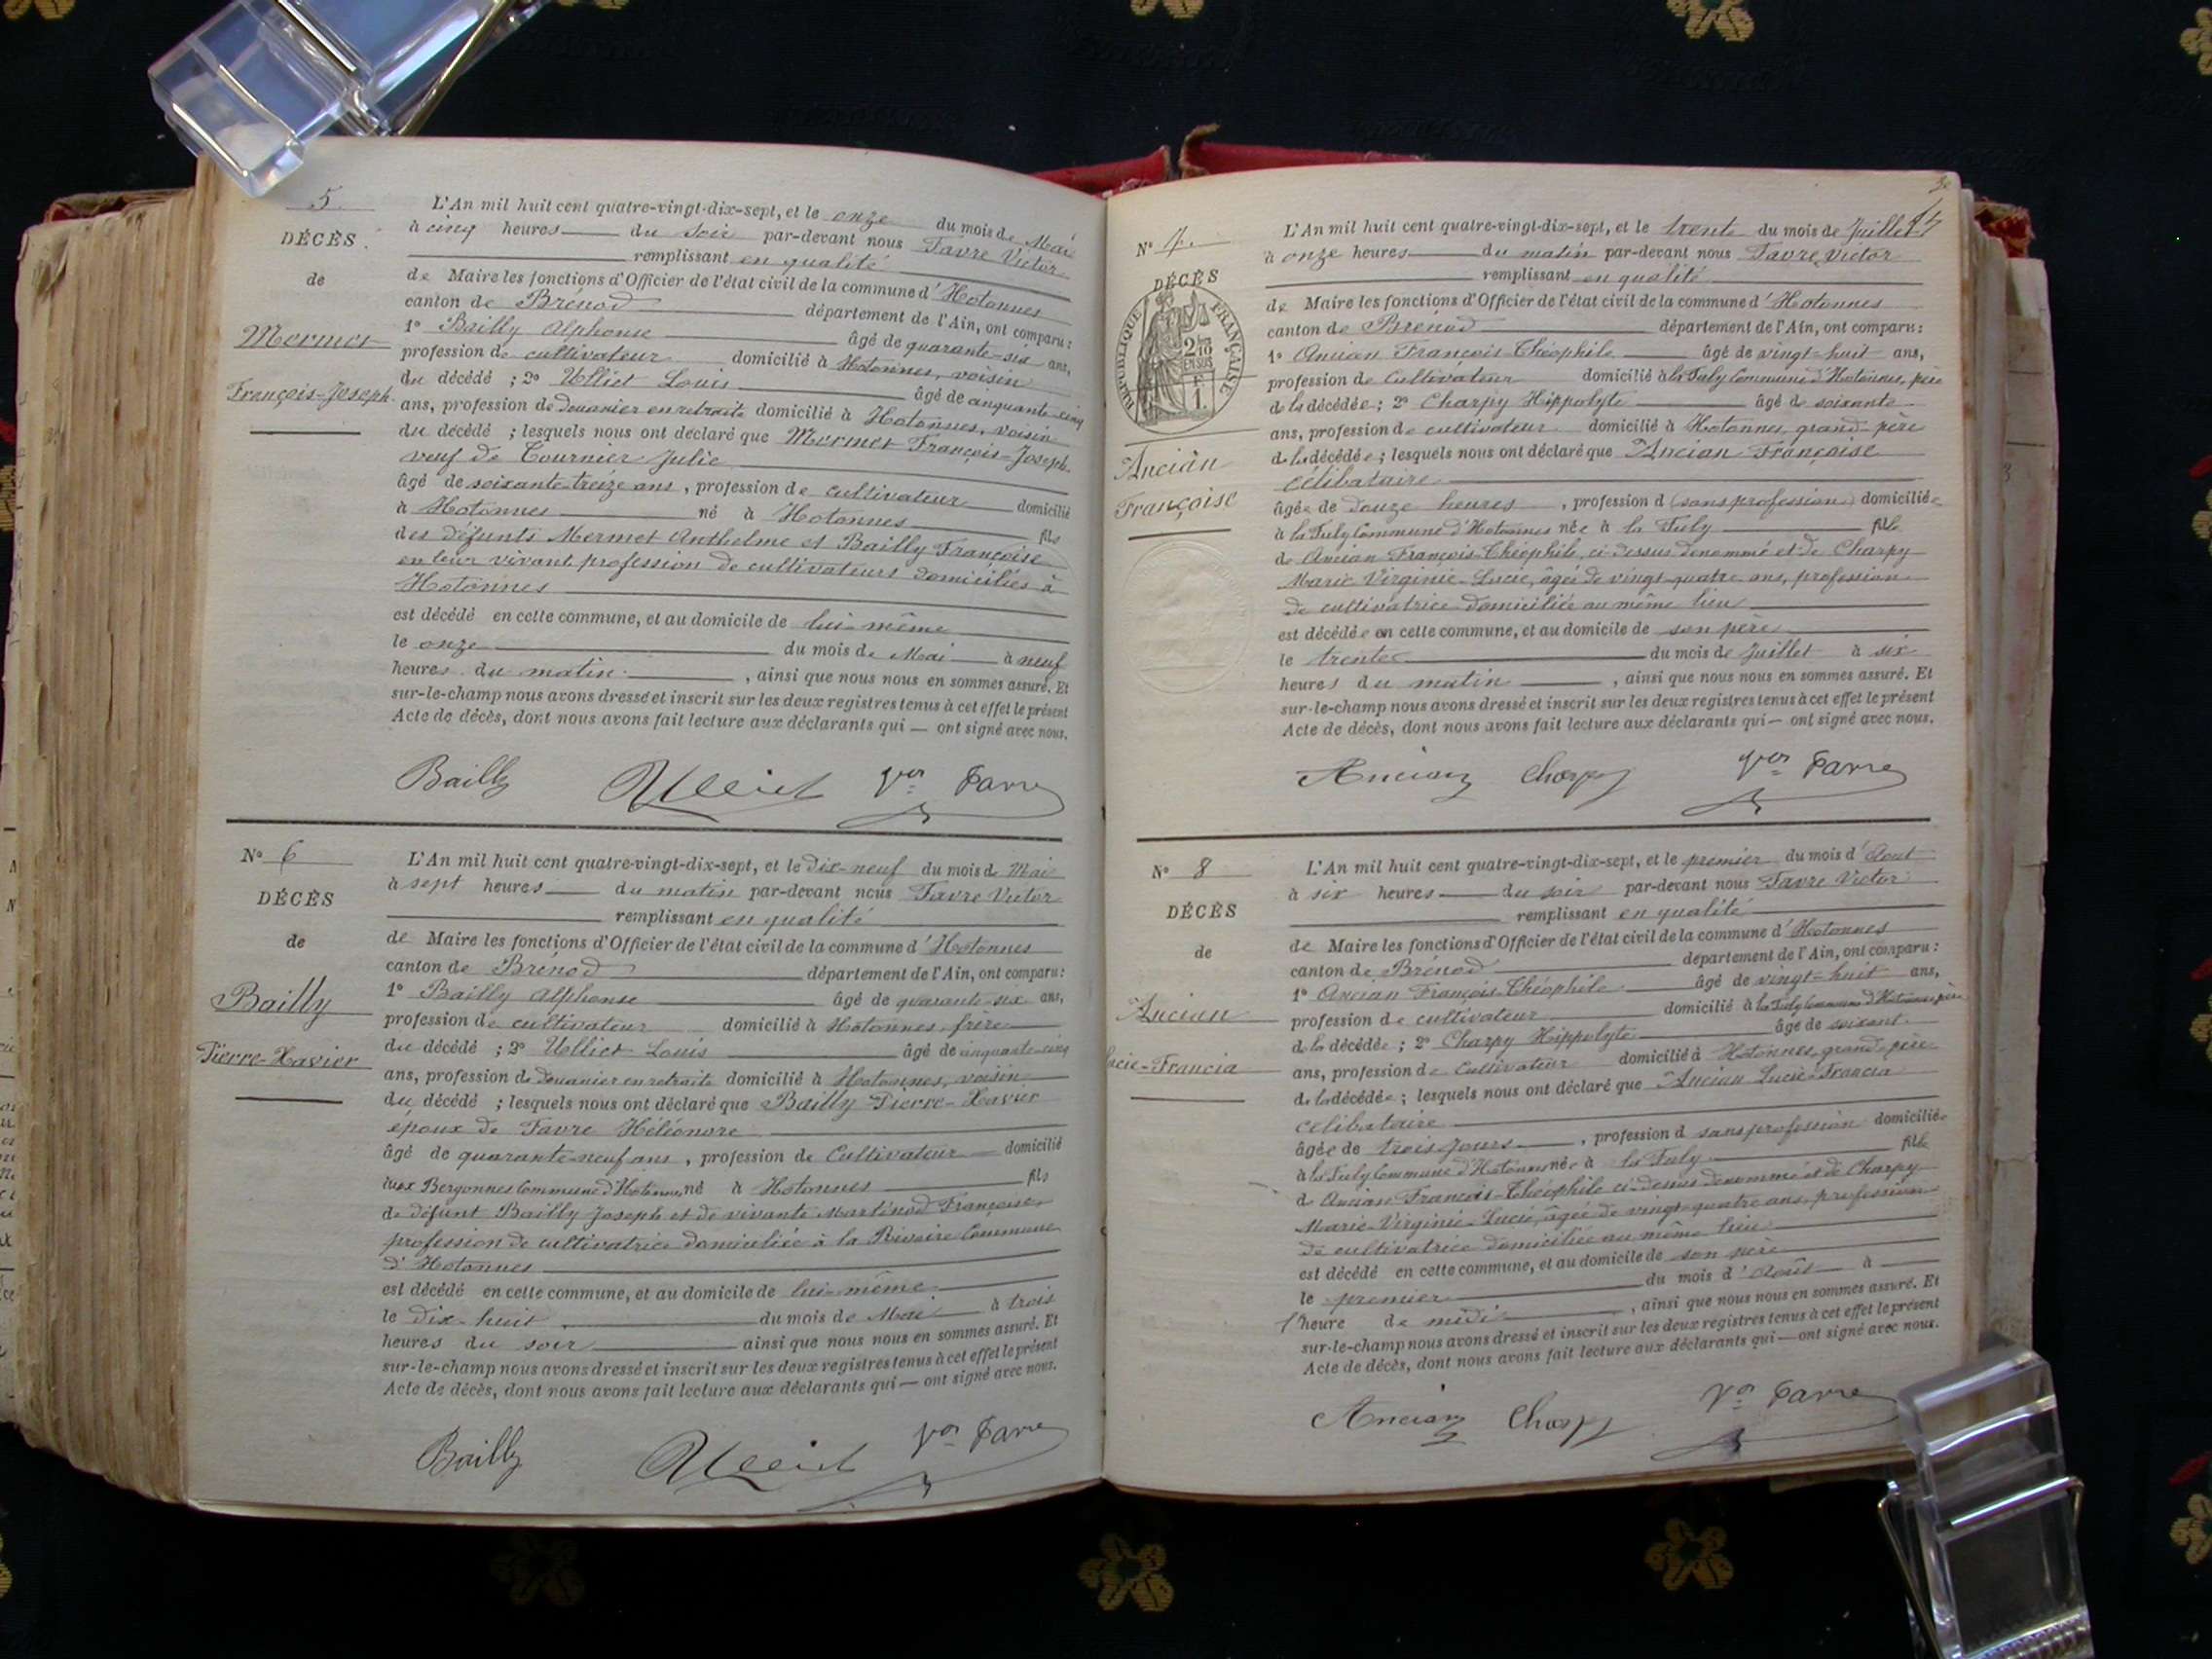 5
DÉCÈS
de
Mermet
François-Joseph
L'An mil huit cent quatre-vingt-dix-sept, et le onze du mois de Mai
à cinq heures du soir par-devant nous Favre Victor
remplissant en qualité
de Maire les fonctions d'Officier de l'état civil de la commune d'Hotonnes
canton de Brénod département de l'Ain, ont comparu :
1º Bailly Alphonse âgé de quarante-six ans,
profession de cultivateur domicilié à Hotonnes, voisin
du décédé ; 2º Ulliet Louis âgé de cinquante-cinq
ans, profession de douanier en retraite domicilié à Hotonnes, voisin
du décédé ; lesquels nous ont déclaré que Mermet François-Joseph
veuf de Tournier Julie
âgé de soixante-treize ans, profession de cultivateur domicilié
à Hotonnes né à Hotonnes fils
des défunts Mermet Anthelme et Bailly Françoise
en leur vivant profession de cultivateurs domiciliés à
Hotonnes
est décédé en cette commune, et au domicile de lui-même
le onze du mois de Mai à neuf
heures du matin, ainsi que nous nous en sommes assuré. Et
sur-le-champ nous avons dressé et inscrit sur les deux registres tenus à cet effet le présent
Acte de décès, dont nous avons fait lecture aux déclarants qui — ont signé avec nous.
Bailly Ulliet Vor Favre
Nº 6
DÉCÈS
de
Bailly
Pierre-Xavier
L'An mil huit cent quatre-vingt-dix-sept, et le dix-neuf du mois de Mai
à sept heures du matin par-devant nous Favre Victor
remplissant en qualité
de Maire les fonctions d'Officier de l'état civil de la commune d'Hotonnes
canton de Brénod département de l'Ain, ont comparu :
1º Bailly Alphonse âgé de quarante-six ans,
profession de cultivateur domicilié à Hotonnes, frère
du décédé ; 2º Ulliet Louis âgé de cinquante-cinq
ans, profession de douanier en retraite domicilié à Hotonnes, voisin
du décédé ; lesquels nous ont déclaré que Bailly Pierre-Xavier
époux de Favre Héléonore
âgé de quarante-neuf ans, profession de Cultivateur domicilié
aux Bergonnes Commune d'Hotonnes, né à Hotonnes fils
de défunt Bailly Joseph et de vivante Martinod Françoise,
profession de cultivatrice domiciliée à la Rivoire Commune
d'Hotonnes
est décédé en cette commune, et au domicile de lui-même
le dix-huit du mois de Mai à trois
heures du soir ainsi que nous nous en sommes assuré. Et
sur-le-champ nous avons dressé et inscrit sur les deux registres tenus à cet effet le présent
Acte de décès, dont nous avons fait lecture aux déclarants qui — ont signé avec nous.
Bailly Ulliet Vor Favre
Nº 7
DÉCÈS
RÉPUBLIQUE FRANÇAISE
2/10 EN SUS
F. 1.
Ancian
Françoise
L'An mil huit cent quatre-vingt-dix-sept, et le trente du mois de Juillet
à onze heures du matin par-devant nous Favre Victor
remplissant en qualité
de Maire les fonctions d'Officier de l'état civil de la commune d'Hotonnes
canton de Brénod département de l'Ain, ont comparu :
1º Ancian François-Théophile âgé de vingt-huit ans,
profession de Cultivateur domicilié à la Fuly Commune d'Hotonnes, père
de la décédée ; 2º Charpy Hippolyte âgé de soixante
ans, profession de cultivateur domicilié à Hotonnes, grand-père
de la décédée ; lesquels nous ont déclaré que Ancian Françoise
célibataire
âgée de douze heures, profession d (sans profession) domiciliée
à la Fuly Commune d'Hotonnes née à la Fuly fille
de Ancian François-Théophile, ci-dessus dénommé et de Charpy
Marie Virginie-Lucie, âgée de vingt-quatre ans, profession
de cultivatrice domiciliée au même lieu
est décédée en cette commune, et au domicile de son père
le trente du mois de Juillet à six
heures du matin, ainsi que nous nous en sommes assuré. Et
sur-le-champ nous avons dressé et inscrit sur les deux registres tenus à cet effet le présent
Acte de décès, dont nous avons fait lecture aux déclarants qui — ont signé avec nous.
Ancian Charpy Vor Favre
Nº 8
DÉCÈS
de
Ancian
Lucie-Francia
L'An mil huit cent quatre-vingt-dix-sept, et le premier du mois d'Aout
à six heures du soir par-devant nous Favre Victor
remplissant en qualité
de Maire les fonctions d'Officier de l'état civil de la commune d'Hotonnes
canton de Brénod département de l'Ain, ont comparu :
1º Ancian François-Théophile âgé de vingt-huit ans,
profession de cultivateur domicilié à la Fuly Commune d'Hotonnes père
de la décédée ; 2º Charpy Hippolyte âgé de soixante
ans, profession de Cultivateur domicilié à Hotonnes, grand-père
de la décédée ; lesquels nous ont déclaré que Ancian Lucie-Francia
célibataire
âgée de trois jours, profession d sans profession domiciliée
à la Fuly Commune d'Hotonnes née à la Fuly fille
d Ancian François-Théophile ci-dessus dénommé et de Charpy
Marie-Virginie-Lucie, âgée de vingt-quatre ans, profession
de cultivatrice domiciliée au même lieu
est décédé en cette commune, et au domicile de son père
le premier du mois d'Août à
1 heure de midi, ainsi que nous nous en sommes assuré. Et
sur-le-champ nous avons dressé et inscrit sur les deux registres tenus à cet effet le présent
Acte de décès, dont nous avons fait lecture aux déclarants qui — ont signé avec nous.
Ancian Charpy Vor Favre